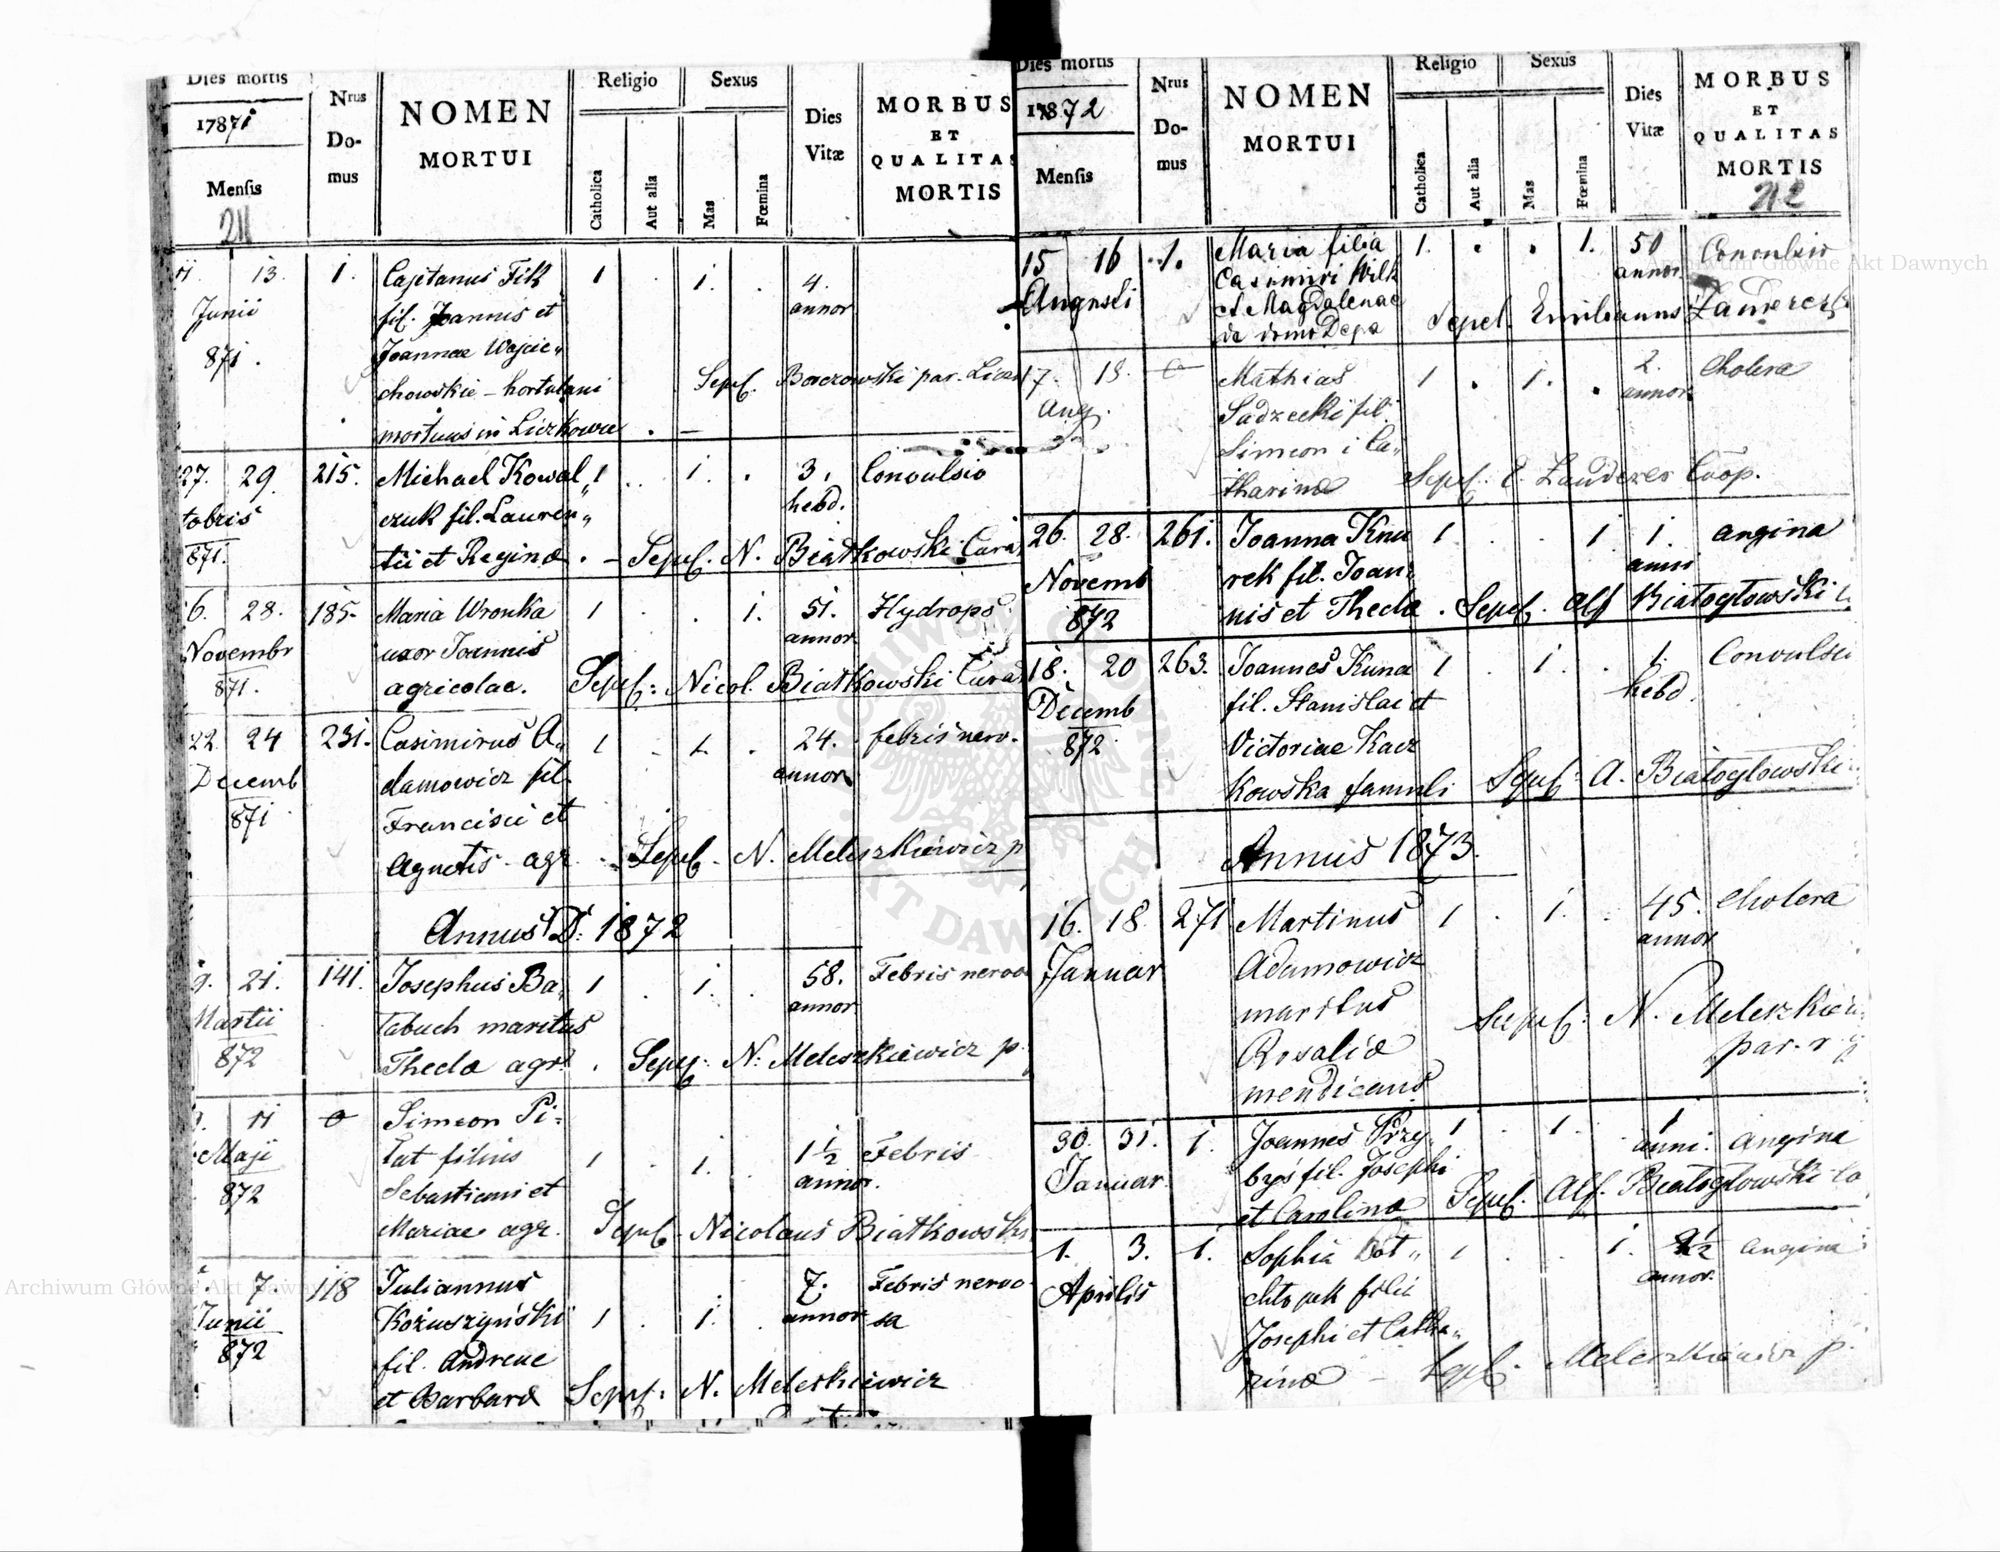 Dies mortis
1787i
Mensis
211
Nrus
Do-
mus
NOMEN
MORTUI
Religio
Catholica
Aut alia
Sexus
Mas
Fœmina
Dies
Vitæ
MORBUS
ET
QUALITAS
MORTIS
11. 13. 1. Cajetanus Fik 1 . 1. . 4.
Junii fil. Joannis et annor
871. Joannae Wojcie„
chowskie - hortulani Sepel. Borczowski par.
mortuus in Liczkowce . -
27. 29. 215. Michael Kowal„ 1 . 1. . 3. Convulsio
tobris czuk fil. Lauren„ hebd.
871. tii et Reginæ . - Sepel. N. Białkowski Cura
6. 28. 185. Maria Wronka 1 . . 1. 51. Hydrops
Novembr uxor Joannis annor
871. agricolae. Sepel: Nicol. Białkowski Cura
22. 24 231. Casimirus A„ 1 . 1. . 24. febris nerv.
Decemb damowicz fil. annor
871 Francisci et
Agnetis - agr. Sepel. N. Meleszkiewicz p
Annus D: 1872
9. 21. 141. Josephus Ba„ 1 . 1. . 58. Febris nervo
Martii tabuch maritus annor
872 Theclæ agr. . Sepel: N: Meleszkiewicz p.
11 0 Simeon Pi-
Maji tat filius 1 . 1. . 1½ Febris
872 Sebastiani et annor.
Mariae agr. Sepel. Nicolaus Białkowski
7 118 Juliannus 7. Febris nervo
Junii Kożuszyński 1 . 1. . annor sa
872 fil. Andreae
et Barbaræ Sepel: N. Meleskiewicz
Dies mortis
1872
Mensis
Nrus
Do-
mus
NOMEN
MORTUI
Religio
Catholica
Aut alia
Sexus
Mas
Fœmina
Dies
Vitæ
MORBUS
ET
QUALITAS
MORTIS
212
15 16 1. Maria filia 1. . . 1. 50 Convulsio
Augusti Casimiri Wilk annor.
et Magdalenae Sepel. Emilianus
de domo Depa
17. 19. 0 Mathias 1 . 1. . 2. Cholera
Aug. Sadzecki fil. annor.
Simeon i Ca„
tharinæ Sepel: E. Lauderer Coop.
26. 28. 261. Joanna Knu 1 . . 1 1. angina
Novemb rek fil. Joan„ anni
872 nis et Theclæ . Sepel. Alf Białogłowski
18. 20 263. Joannes Kuna 1 . 1. . 1. Convulsi
Decemb fil. Stanislai et hebd.
872 Victoriae Kacz
kowska famuli Sepel: A. Białogłowski
Annus 1873.
16. 18. 271 Martinus 1 . 1. . 45. Cholera
Januar Adamowicz annor
maritus Sepel: N. Meleszkiew
Rosaliæ par. r. g
mendicans
30. 31. 1. Joannes Przy„ 1 . 1. 1 angina
Januar. byś fil. Josephi anni.
et Carolinæ Sepel. Alf. Białogłowski Co
1. 3. 1. Sophia 1 . . 1. ½ angina
Aprilis filia annor.
Josephi et Catha„
rinæ - Sepel. Meleszkiewicz p.
Archiwum Główne Akt Dawnych
Archiwum Główne Akt Dawnych
ARCHIWUM GŁÓWNE AKT DAWNYCH